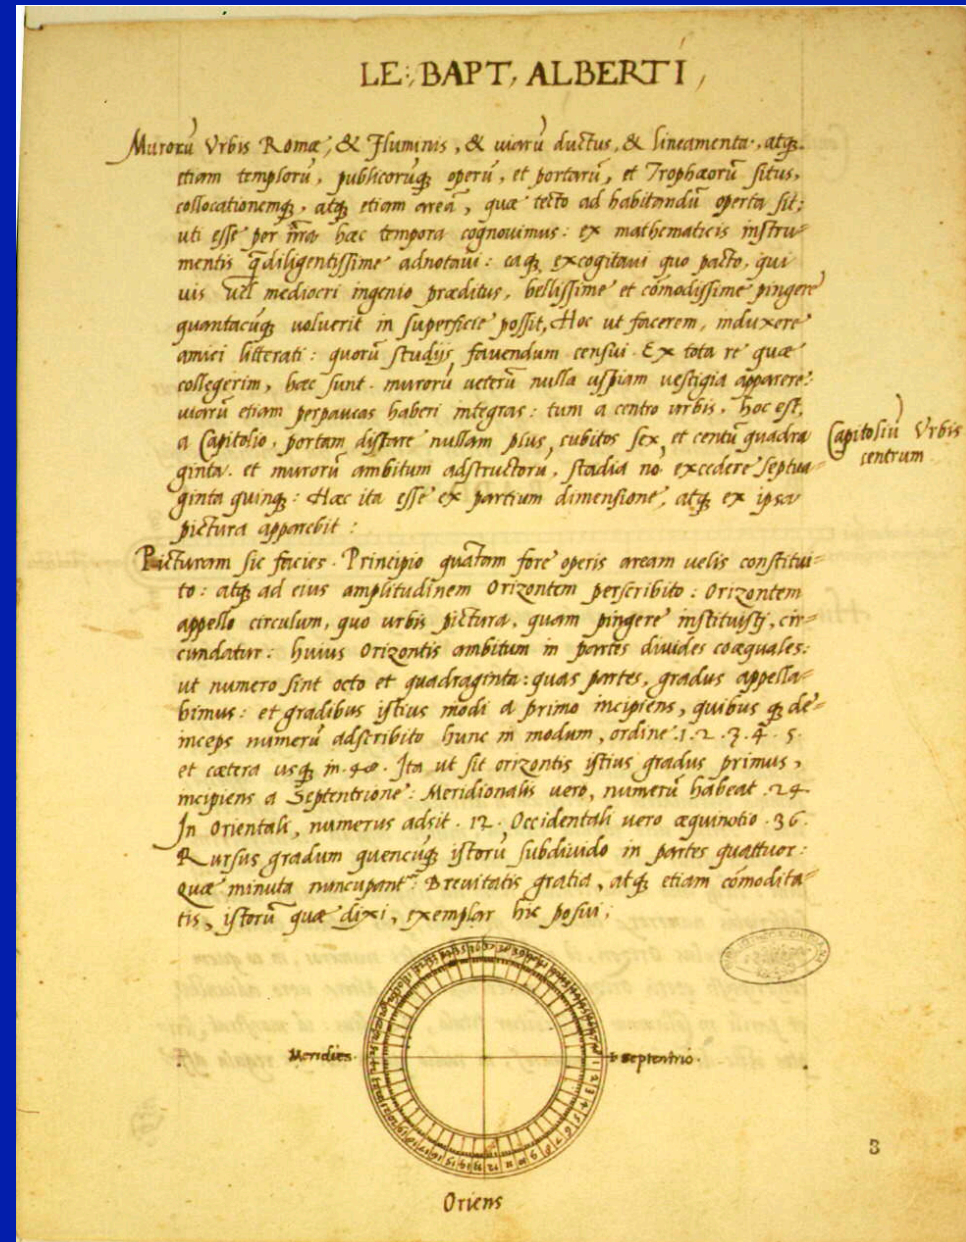 LE:, BAPT, ALBERTI,
Murorũ Vrbis Romæ, & Fluminis, & uiarũ ductus, & lineamenta, atq̃
etiam templorũ, publicorũq̃ operũ, et portarũ, et Trophæorũ situs,
collocationemq̃, atq̃ etiam areã, quæ tecto ad habitandũ operta sit:
uti esse per nr̃a hæc tempora cognouimus: ex mathematicis instru=
mentis q̃ diligentissime adnotaui: eaq̃ excogitaui quo pacto, qui
uis uel mediocri ingenio præditus, bellissime et cõmodissime pingere
quantacũq̃ uoluerit in superficie possit, Hoc ut facerem, induxere
amici litterati: quorũ studijs fauendum censui. Ex tota re quæ
collegerim, hæc sunt. murorũ ueterũ nulla uspiam uestigia apparere:
uiarũ etiam perpaucas haberi integras: tum a centro urbis, hoc est,
a Capitolio, portam distare nullam plus, cubitos sex, et centũ quadra
ginta. et murorũ ambitum adstructorũ, stadia nõ excedere septua=
ginta quinq̃: Hæc ita esse ex partium dimensione, atq̃ ex ipsa
pictura apparebit:
Capitoliũ Vrbis
centrum
Picturam sic facies. Principio quãtam fore operis aream uelis constitui=
to: atq̃ ad eius amplitudinem Orizontem perscribito: Orizontem
appello circulum, quo urbis pictura, quam pingere instituisti, cir=
cundatur: huius Orizontis ambitum in partes diuides coæquales:
ut numero sint octo et quadraginta: quas partes, gradus appella=
bimus: et gradibus istius modi a primo incipiens, quibus q̃ de=
inceps numerũ adscribito hunc in modum, ordine .1. 2. 3. 4. 5.
et cætera usq̃ in .48. Ita ut sit orizontis istius gradus primus,
incipiens a Septentrione: Meridionalis uero, numerũ habeat .24
In Orientali, numerus adsit .12. Occidentali uero æquinotio .36.
Rursus gradum quencũq̃ istorũ subdiuido in partes quattuor:
Quæ minuta nuncupant. Breuitatis gratia, atq̃ etiam cõmodita=
tis, istorũ quæ dixi, exemplar hic posui;
Meridies
septentrio
Oriens
3